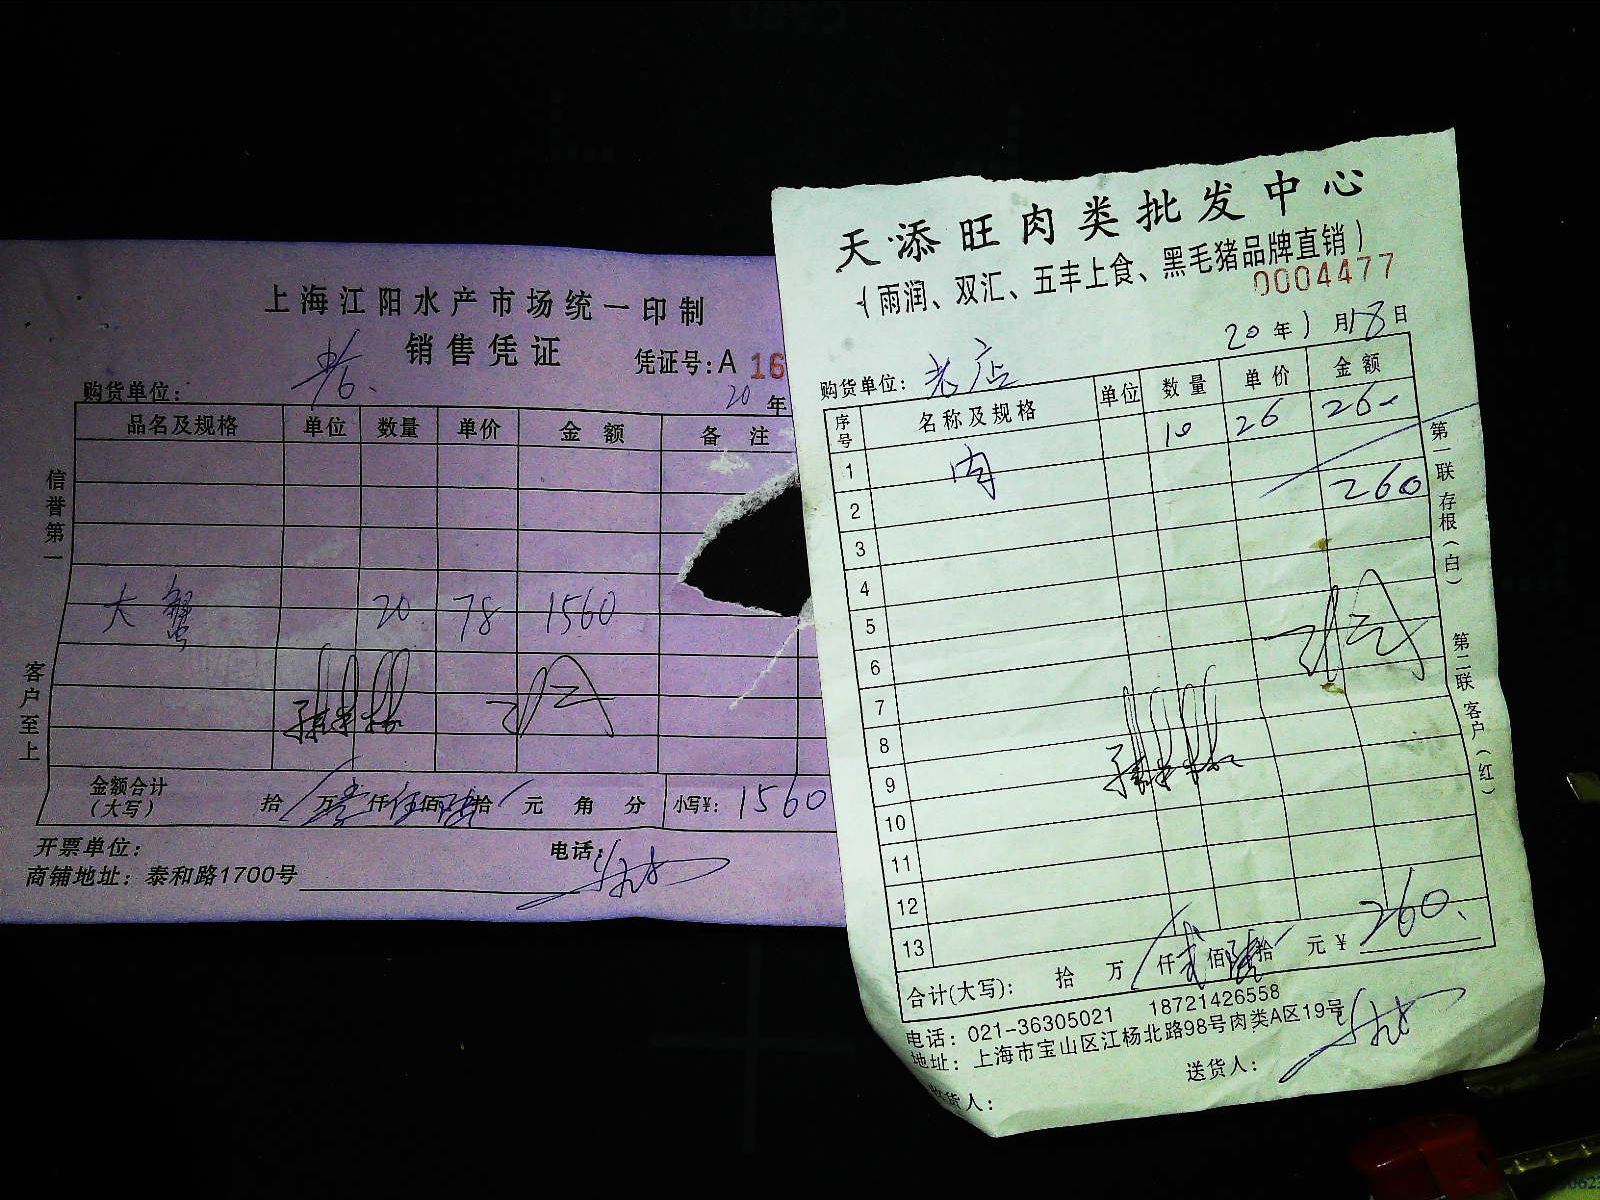 上海江阳水产市场统一印制
销售凭证
凭证号:A 16
购货单位:
20 年
品名及规格 单位 数量 单价 金额 备注
大蟹 20 78 1560
信誉第一
客户至上
金额合计
(大写)
拾 万 壹 仟 伍 佰 陆 拾 元 角 分 小写¥: 1560
开票单位:
电话:
商铺地址: 泰和路1700号
天添旺肉类批发中心
(雨润、双汇、五丰上食、黑毛猪品牌直销)
0004477
20 年 1 月 18 日
购货单位: 老店
序号 名称及规格 单位 数量 单价 金额
1 肉 10 26 260
2 260
3
4
5
6
7
8
9
10
11
12
13
合计(大写): 拾 万 仟 贰 佰 陆 拾 元 ¥ 260
电话: 021-36305021 18721426558
地址: 上海市宝山区江杨北路98号肉类A区19号
送货人:
货人:
第一联 存根(白)
第二联 客户(红)